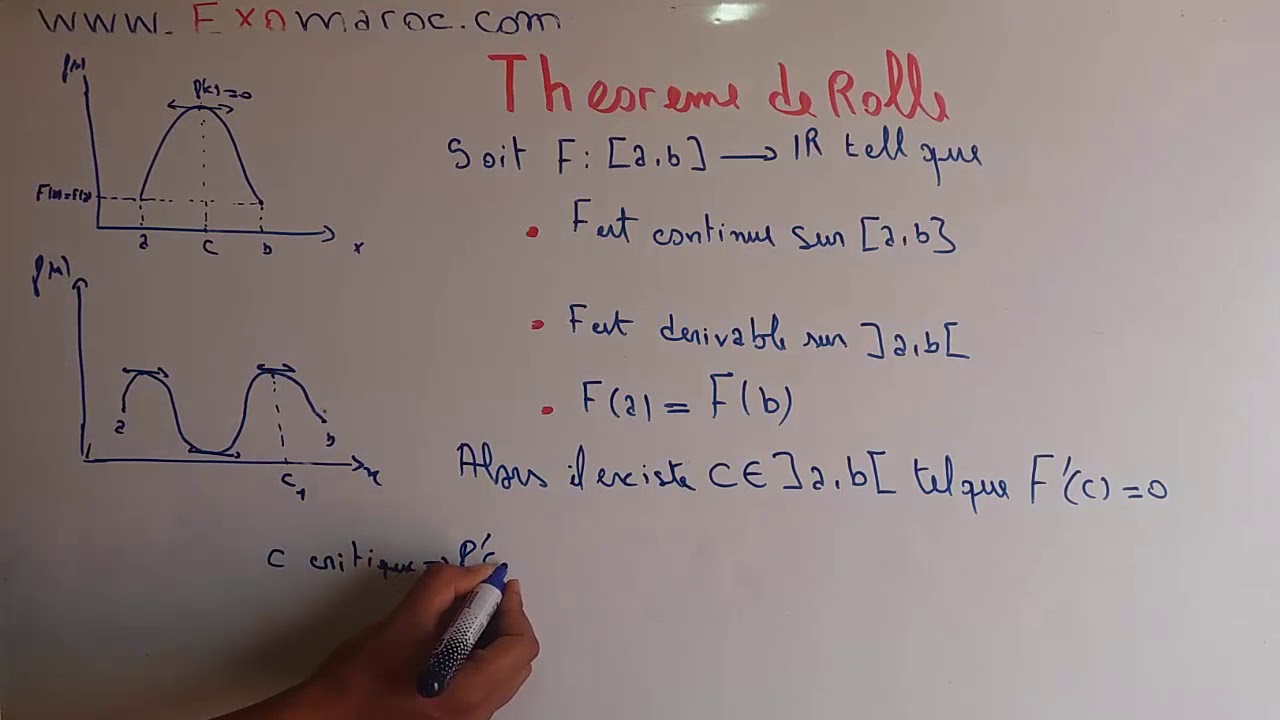 www.Exomaroc.com
Theoreme de Rolle
Soit F: [a,b] → IR tell que
• F est continue sur [a,b]
• F est derivable sur ]a,b[
• F(a) = F(b)
Alors il existe C ∈ ]a,b[ tel que F'(c) = 0
C critique →
f(x)
f'(c)=0
F(a)=F(b)
a
c
b
x
f(x)
a
b
C1
x